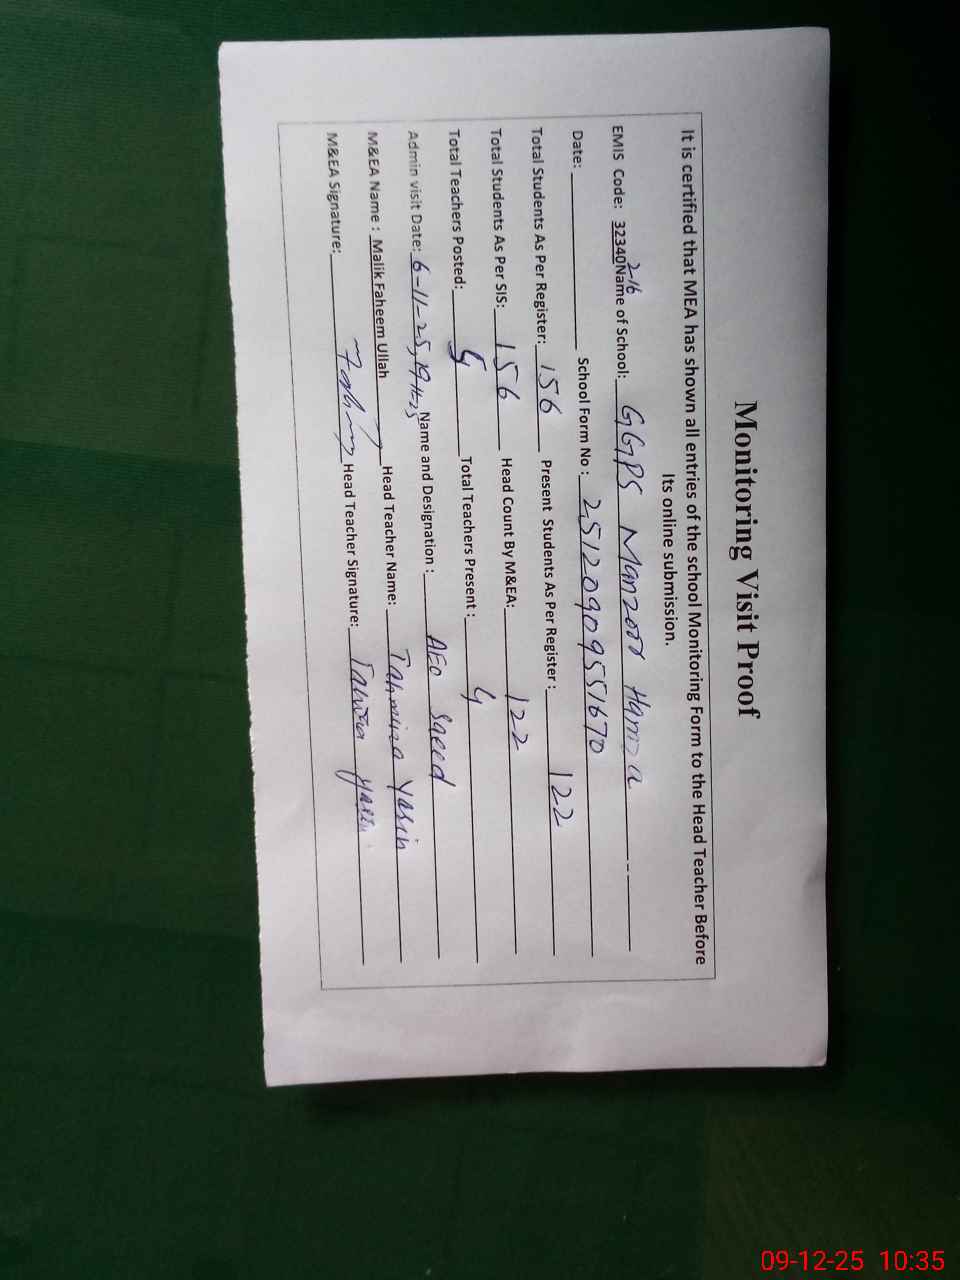 Monitoring Visit Proof
It is certified that MEA has shown all entries of the school Monitoring Form to the Head Teacher Before
Its online submission.
EMIS Code: 32340216 Name of School: GGPS Manzoor Hamza
Date: School Form No : 25120909551670
Total Students As Per Register: 156 Present Students As Per Register : 122
Total Students As Per SIS: 156 Head Count By M&EA: 122
Total Teachers Posted: 4 Total Teachers Present : 4
Admin visit Date: 6-11-25, 19-11-25 Name and Designation : AEO Saeed
M&EA Name : Malik Faheem Ullah Head Teacher Name: Tahmina Yasin
M&EA Signature: Head Teacher Signature: Yasin
09-12-25 10:35